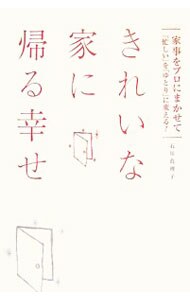 家事をプロにまかせて
「忙しい」を「ゆとり」に変える!
きれいな
家に
帰る幸せ